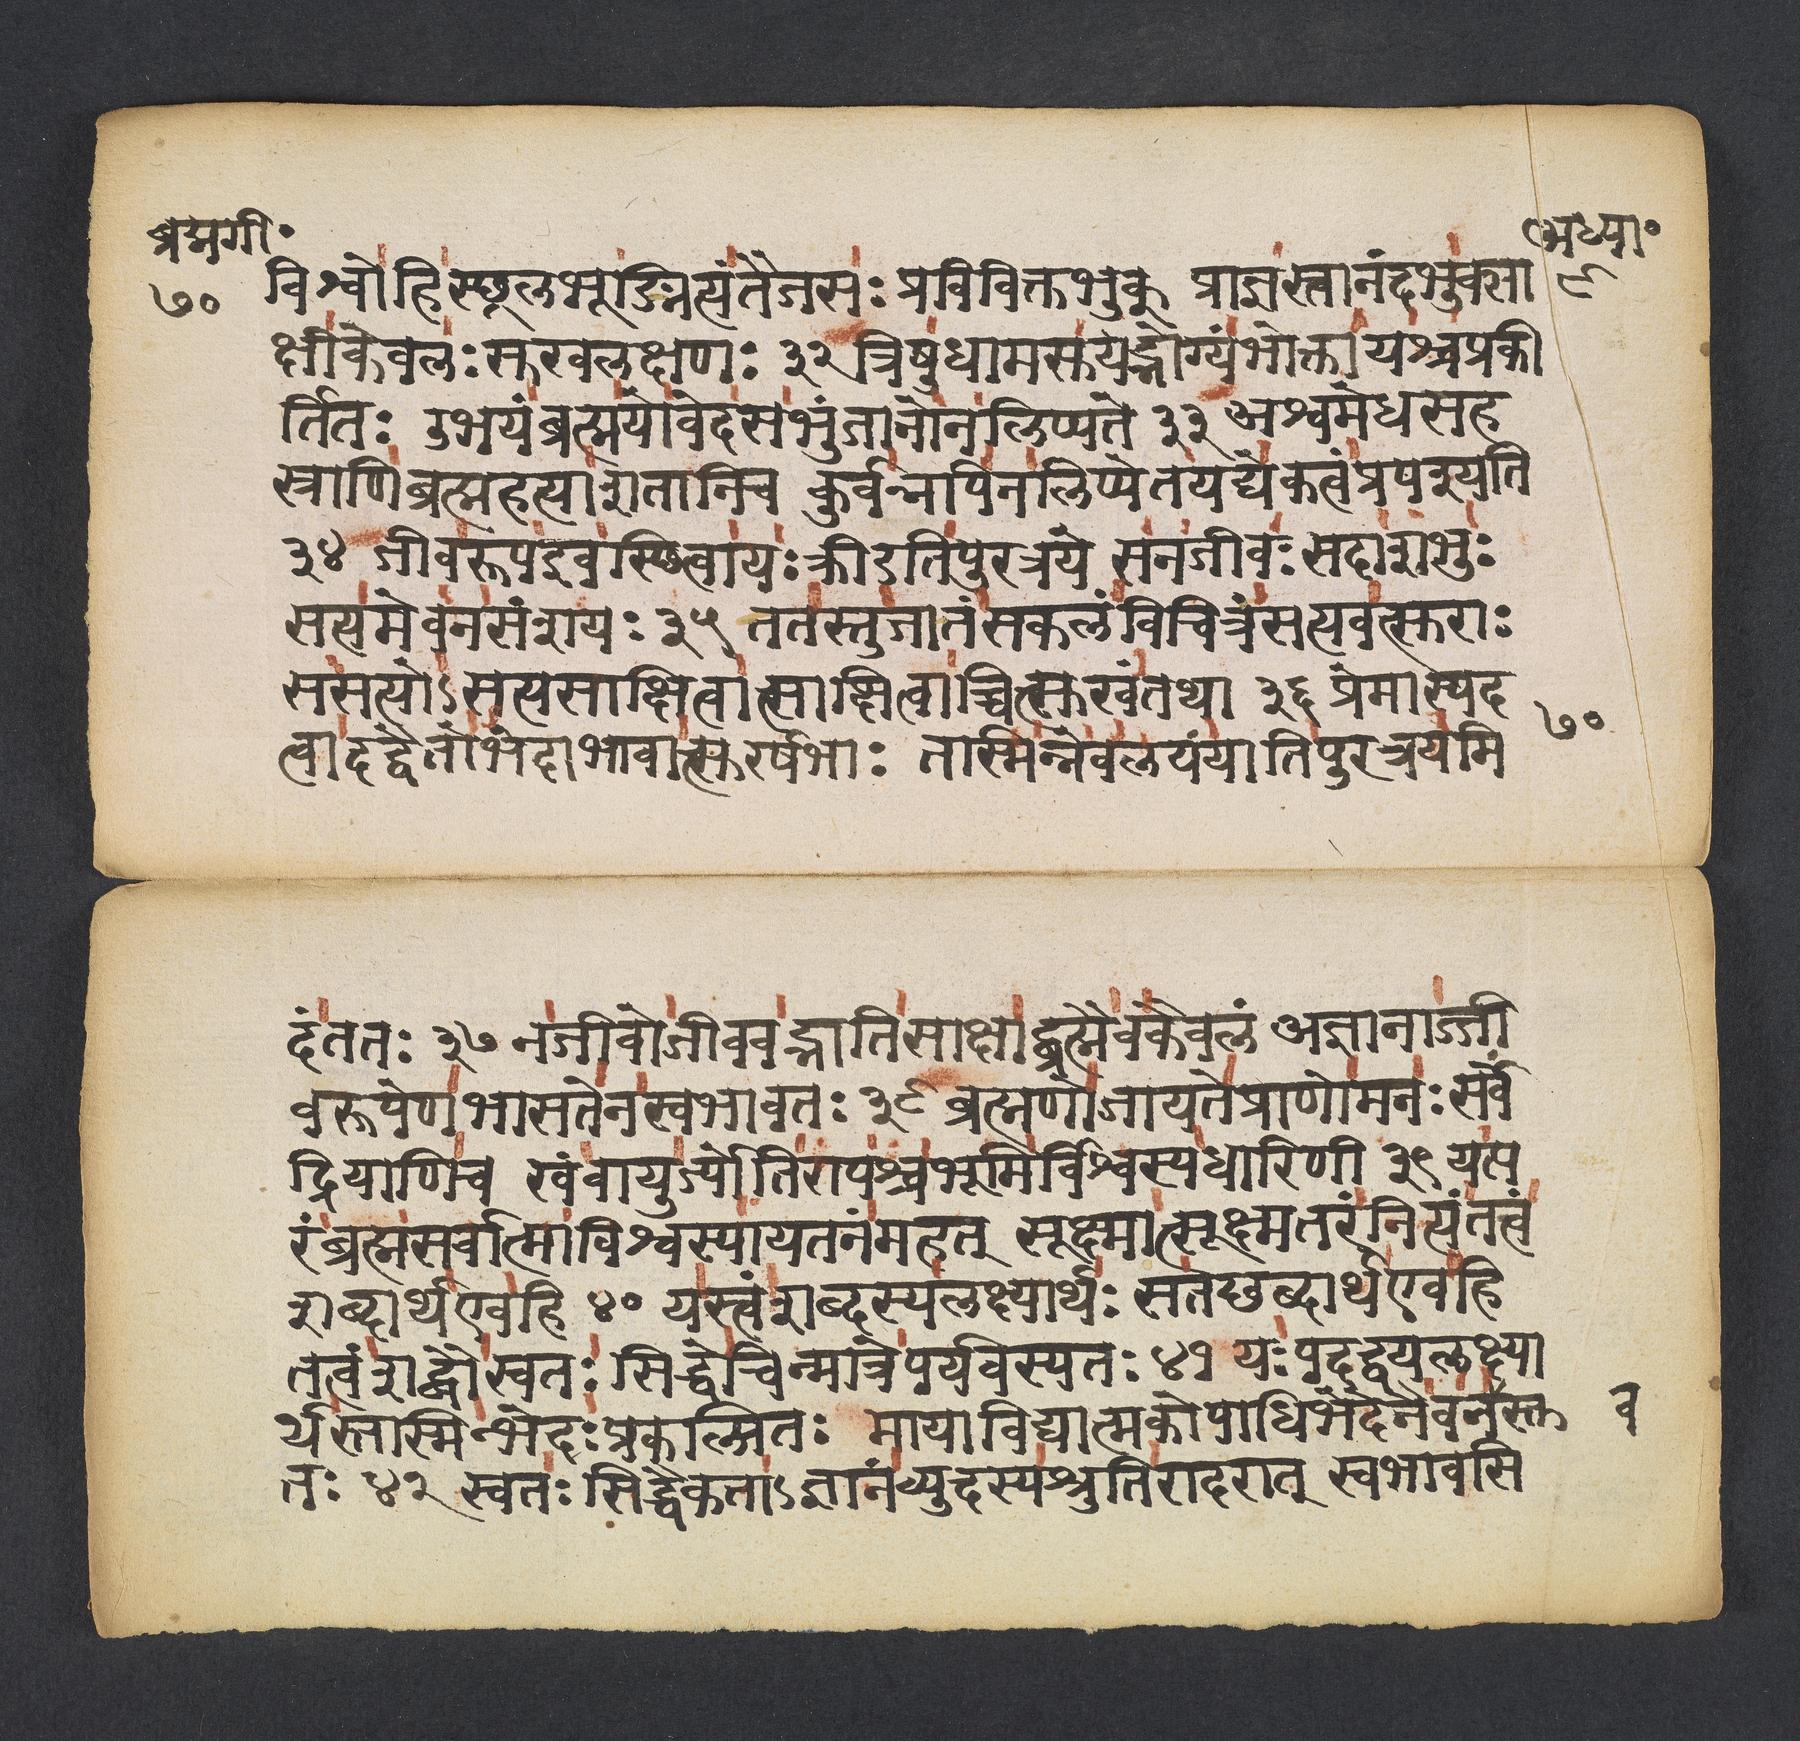 ब्रह्मगी॰
अध्या॰
७०
८
विश्वोहिस्थूलभूङ्नित्यंतैजसः प्रविविक्तभुक् प्राज्ञस्त्वानंदभुक्सा
क्षीकेवलःसुखलक्षणः ३२ त्रिषुधामसुयद्भोग्यंभोक्तायश्चप्रकी
र्तितः उभयंब्रह्मयोवेदसभुंजानोनलिप्यते ३३ अश्वमेधसह
स्त्राणिब्रह्महत्याशतानिच कुर्वन्नपिनलिप्येतयद्येकत्वंप्रपश्यति
३४ जीवरूपइवस्थित्वायःक्रीडतिपुरत्रये सनजीवःसदाशंभुः
सत्यमेवनसंशयः ३५ ततस्तुजातंसकलंविचित्रंसत्यवत्सुराः
ससत्योऽसत्यसाक्षित्वात्साक्षित्वाच्चित्सुखंतथा ३६ प्रेमास्पद
त्वादद्वैतोभेदाभावात्सुरर्षभाः तस्मिन्नेवलयंयातिपुरत्रयमि
७०
दंततः ३७ नजीवोजीववद्भातिसाक्षाद्ब्रह्मैवकेवलं अज्ञानाज्जी
वरूपेणभासतेनस्वभावतः ३८ ब्रह्मणोजायतेप्राणोमनःसर्वें
द्रियाणिच खंवायुर्ज्योतिरापश्चभूमिर्विश्वस्यधारिणी ३९ यत्प
रंब्रह्मसर्वात्माविश्वस्यायतनंमहत् सूक्ष्मात्सूक्ष्मतरंनित्यंतत्त्वं
शब्दार्थएवहि ४० यस्त्वंशब्दस्यलक्ष्यार्थः सतछब्दार्थएवहि
तत्वंशब्दौस्वतःसिद्धेचिन्मात्रेपर्यवस्यतः ४१ यःपदद्वयलक्ष्या
र्थस्तस्मिन्भेदःप्रकल्पितः मायाविद्यात्मकोपाधिभेदेनैवनवस्तु
व
तः ४२ स्वतःसिद्धैकताऽज्ञानंव्युदस्यश्रुतिरादरात् स्वभावसि